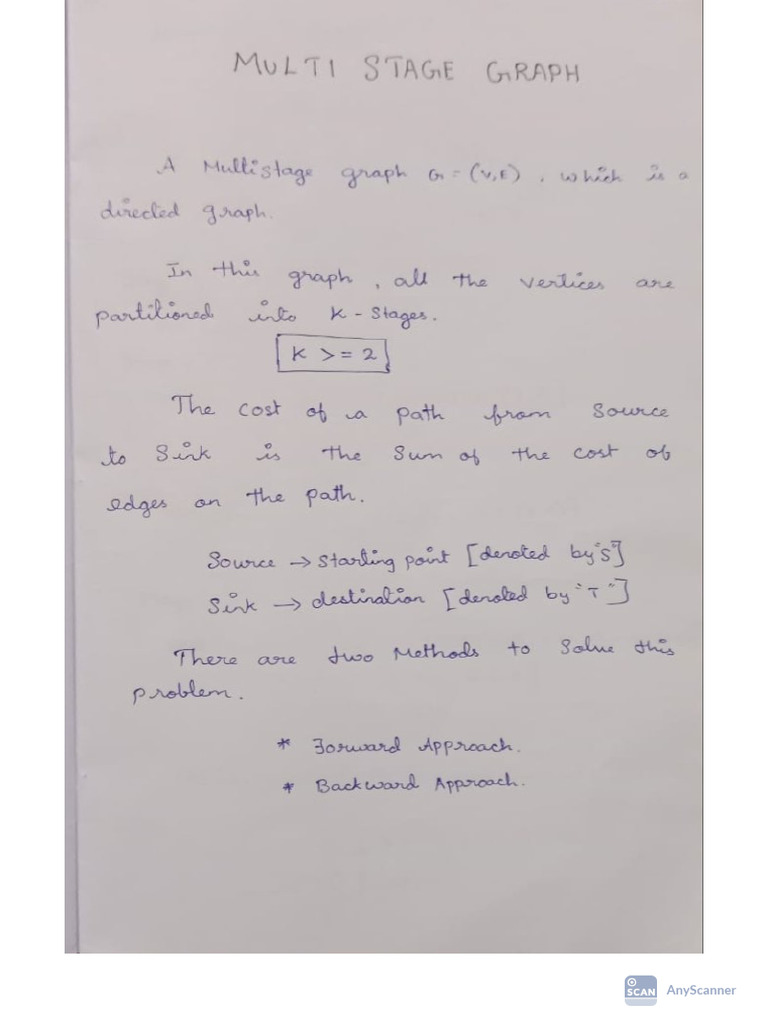 MULTI STAGE GRAPH
A Multistage graph G = (V,E) , which is a
directed graph.
In this graph , all the vertices are
partitioned into K - Stages.
K >= 2
The cost of a path from Source
to Sink is the Sum of the cost of
edges on the path.
Source → Starting point [denoted by "S"]
Sink → destination [denoted by "T"]
There are two Methods to Solve this
problem.
* Forward Approach.
* Backward Approach.
SCAN AnyScanner